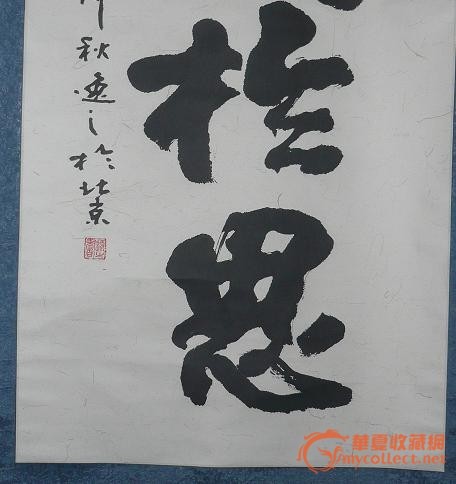 於思
秋逸之於北京
華夏收藏網
mycollect.net